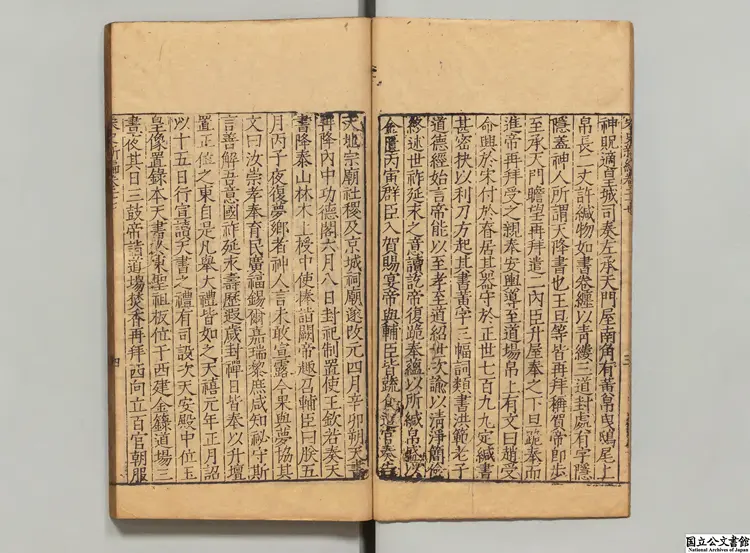 神貺適皇城司奏左承天門屋南角有黃帛曳鴟尾上
帛長二丈許緘物如書卷纏以青縷三道封處有字隱
隱蓋神人所謂天降書也王旦等皆再拜稱賀帝即步
至承天門瞻望再拜遣二內臣升屋奉之下旦跪奉而
進帝再拜受之親奉安輿導至道場帛上有文曰趙受
命興於宋付於春居其器守於正世七百九九定緘書
甚密抉以利刀方起其書黃字三幅詞類書洪範老子
道德經始言帝能以至孝至道紹世次諭以清淨簡儉
終述世祚延永之意讀訖帝復跪奉蘊以所緘帛盛以
金匱丙寅群臣入賀賜宴帝與輔臣皆蔬食遣官奏告
天地宗廟社稷及京城祠廟遂改元四月辛卯朔天書
再降內中功德閣六月八日封祀制置使王欽若奏天
書降泰山林木上授中使捧詣闕帝趣召輔臣曰朕五
月丙子夜復夢鄉者神人言未敢宣露今果與夢協其
文曰汝崇孝奉育民廣福錫爾嘉瑞黎庶咸知祕守斯
言善解吾意國祚延永壽歷遐歲封禪日皆奉以升壇
置正位之東自是凡舉大禮皆如之天禧元年正月詔
以十五日行宣讀天書之禮有司設次天安殿中位玉
皇像置錄本天書於東聖祖板位于西建金籙道場三
晝夜其日三鼓帝詣道場焚香再拜西向立百官朝服
四
国立公文書館
National Archives of Japan